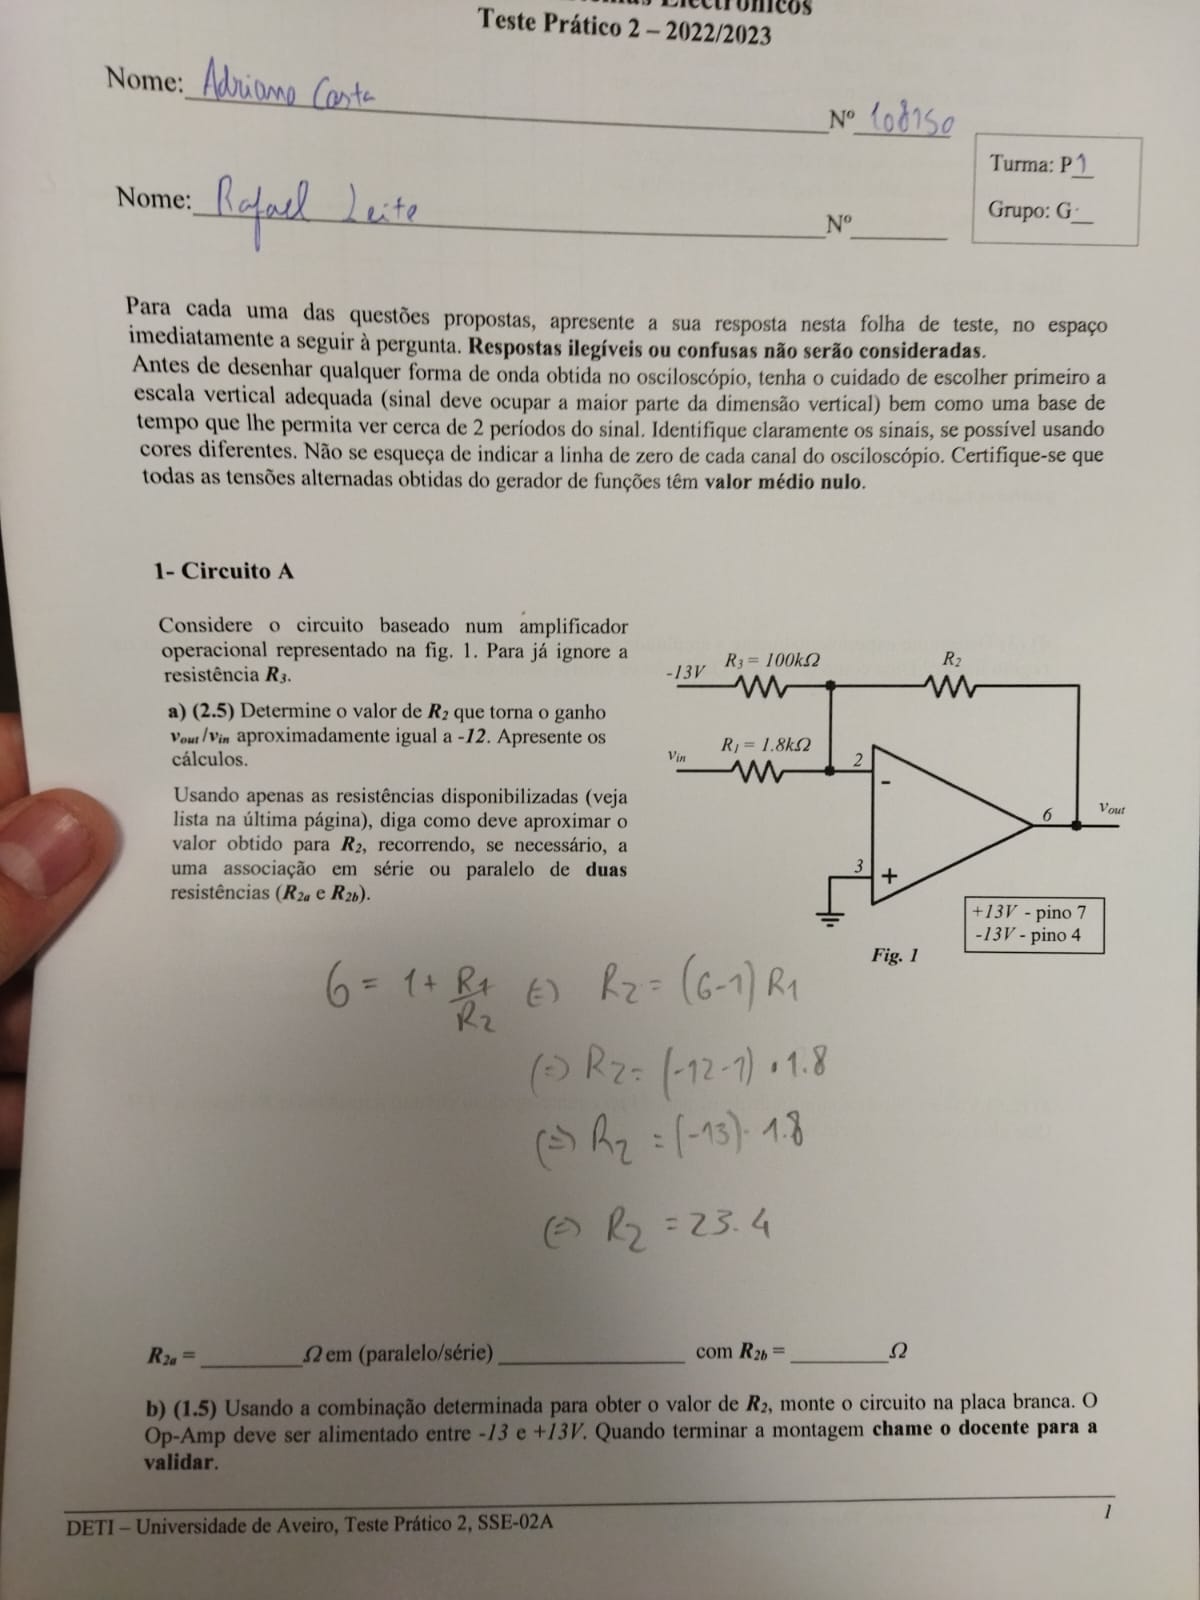 Electrónicos
Teste Prático 2 – 2022/2023
Nome: Adriano Costa
Nº 108150
Turma: P1
Grupo: G
Nome: Rafael Leite
Nº
Para cada uma das questões propostas, apresente a sua resposta nesta folha de teste, no espaço
imediatamente a seguir à pergunta. Respostas ilegíveis ou confusas não serão consideradas.
Antes de desenhar qualquer forma de onda obtida no osciloscópio, tenha o cuidado de escolher primeiro a
escala vertical adequada (sinal deve ocupar a maior parte da dimensão vertical) bem como uma base de
tempo que lhe permita ver cerca de 2 períodos do sinal. Identifique claramente os sinais, se possível usando
cores diferentes. Não se esqueça de indicar a linha de zero de cada canal do osciloscópio. Certifique-se que
todas as tensões alternadas obtidas do gerador de funções têm valor médio nulo.
1- Circuito A
Considere o circuito baseado num amplificador
operacional representado na fig. 1. Para já ignore a
resistência R3.
a) (2.5) Determine o valor de R2 que torna o ganho
vout/vin aproximadamente igual a -12. Apresente os
cálculos.
Usando apenas as resistências disponibilizadas (veja
lista na última página), diga como deve aproximar o
valor obtido para R2, recorrendo, se necessário, a
uma associação em série ou paralelo de duas
resistências (R2a e R2b).
-13V R3 = 100kΩ R2
vin R1 = 1.8kΩ 2
-
6 vout
3
+
+13V - pino 7
-13V - pino 4
Fig. 1
G = 1 + R1/R2 (=) R2 = (G-1) R1
(=) R2 = (-12-1) . 1.8
(=) R2 = (-13) . 1.8
(=) R2 = 23.4
R2a = ________Ω em (paralelo/série) ________ com R2b = ________Ω
b) (1.5) Usando a combinação determinada para obter o valor de R2, monte o circuito na placa branca. O
Op-Amp deve ser alimentado entre -13 e +13V. Quando terminar a montagem chame o docente para a
validar.
DETI – Universidade de Aveiro, Teste Prático 2, SSE-02A
1